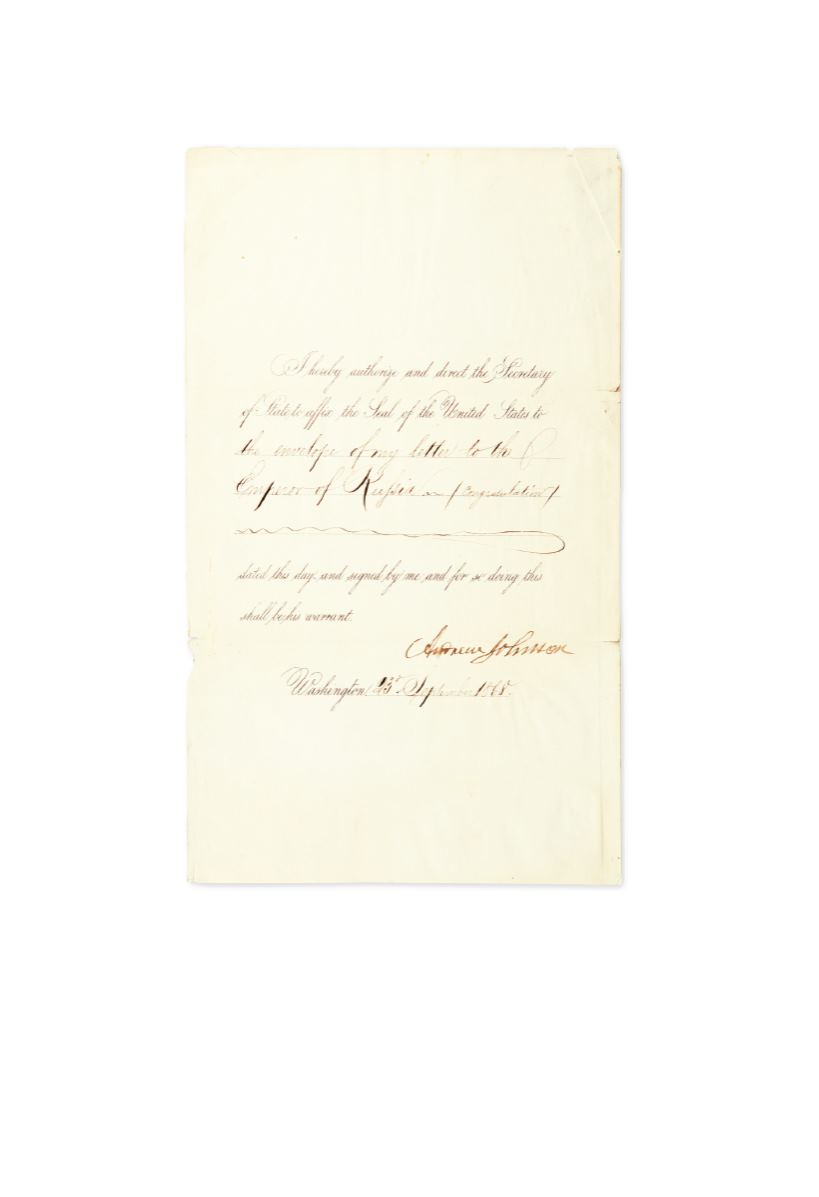 I hereby authorize and direct the Secretary
of State to affix the Seal of the United States to
the envelope of my letter to the
Emperor of Russia (Congratulation)
dated this day and signed by me and for so doing this
shall be his warrant.
Andrew Johnson
Washington, 23d September 1868.